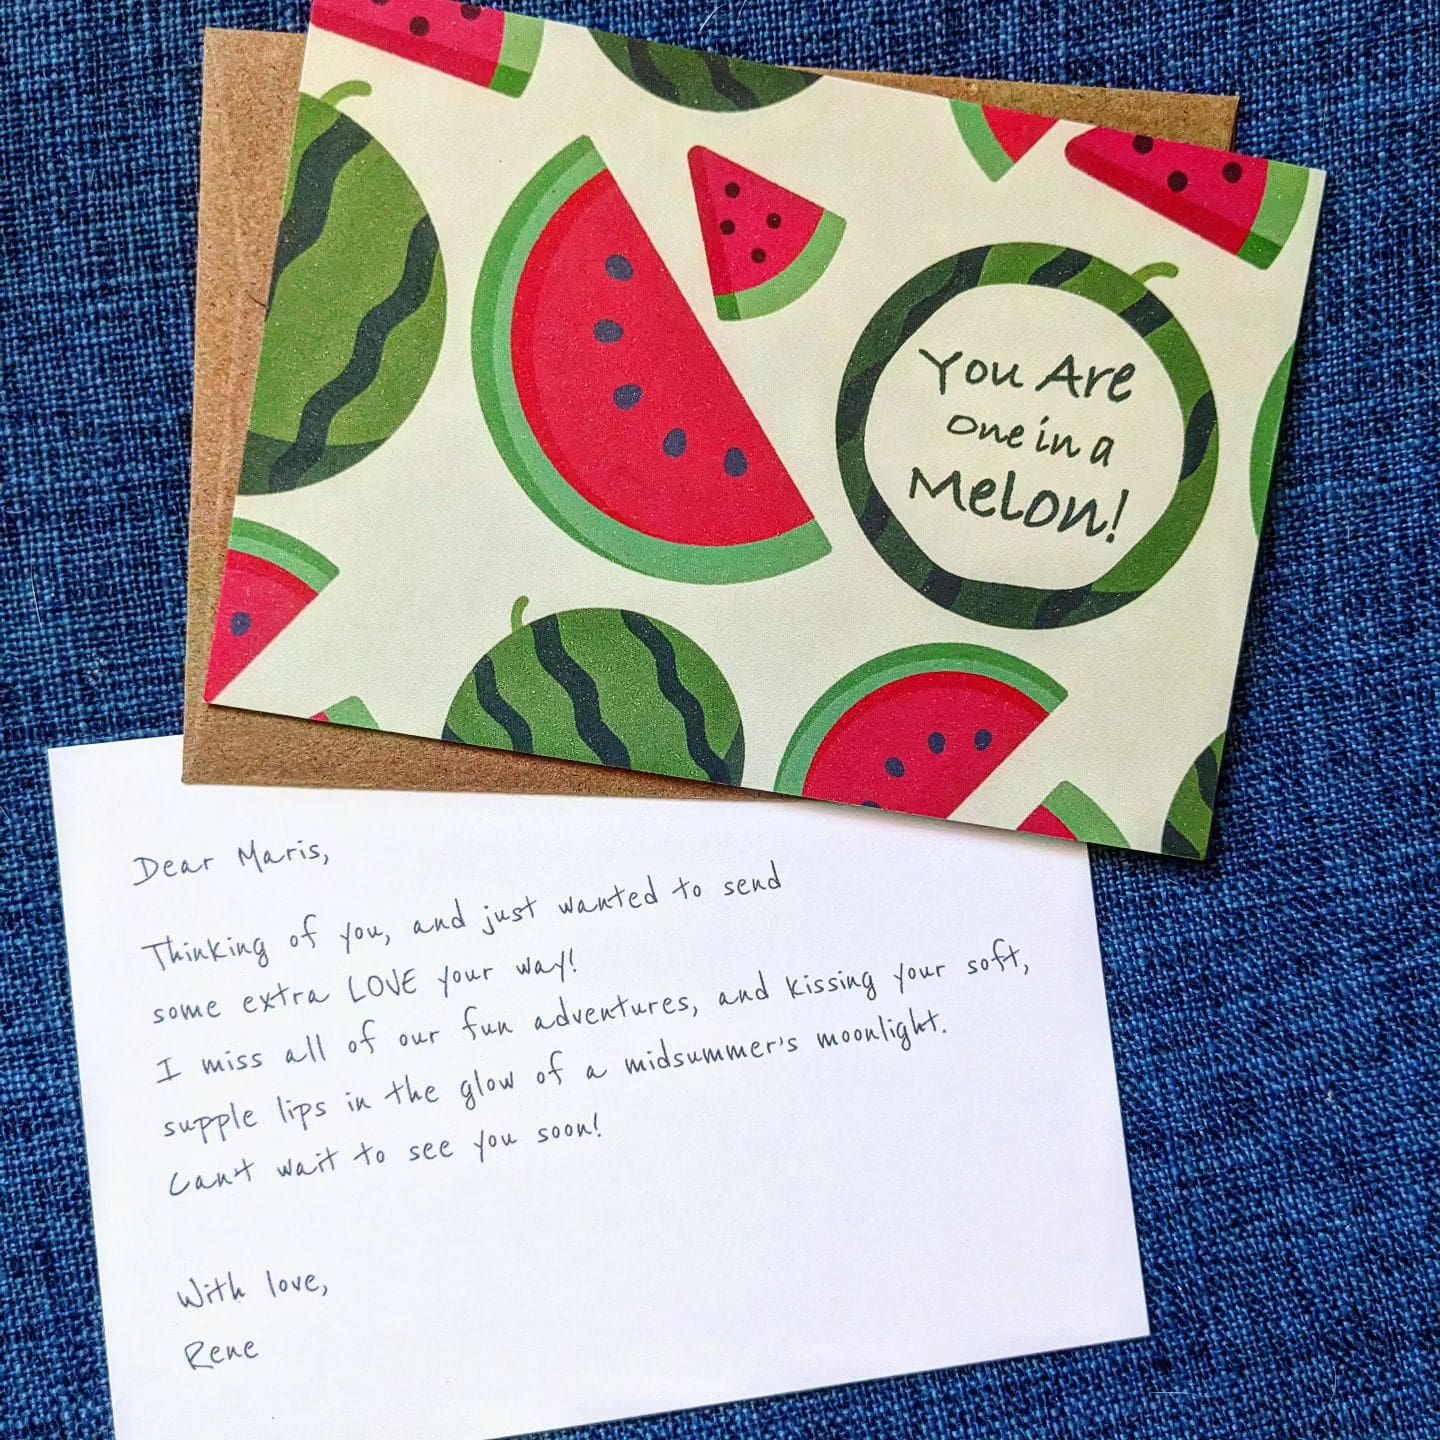 You Are
one in a
Melon!
Dear Maris,
Thinking of you, and just wanted to send
some extra LOVE your way!
I miss all of our fun adventures, and kissing your soft,
supple lips in the glow of a midsummer's moonlight.
Can't wait to see you soon!
With love,
Rene